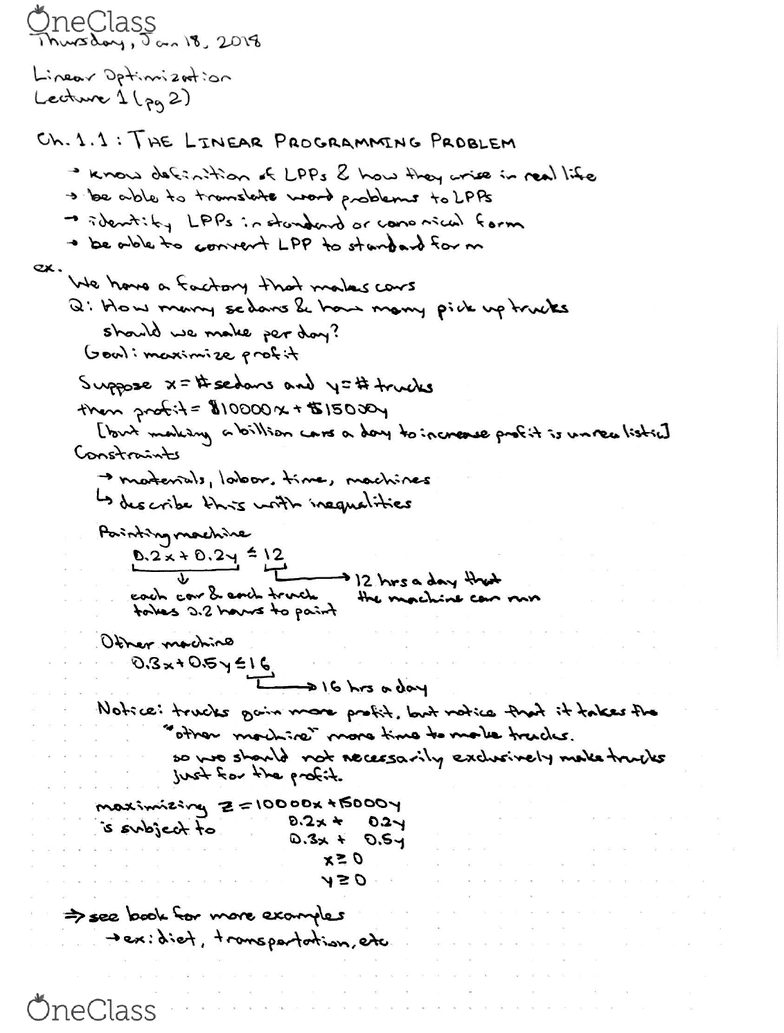 OneClass
Thursday, Jan 18, 2018
Linear Optimization
Lecture 1 (pg 2)
Ch. 1.1: THE LINEAR PROGRAMMING PROBLEM
→ know definition of LPPs & how they arise in real life
→ be able to translate word problems to LPPs
→ identify LPPs in standard or canonical form
→ be able to convert LPP to standard form
ex.
We have a factory that makes cars
Q: How many sedans & how many pick up trucks
should we make per day?
Goal: maximize profit
Suppose x = # sedans and y = # trucks
then profit = $10000x + $15000y
[but making a billion cars a day to increase profit is unrealistic]
Constraints
→ materials, labor, time, machines
↳ describe this with inequalities
Painting machine
0.2x + 0.2y ≤ 12
→ 12 hrs a day that
the machine can run
each car & each truck
takes 0.2 hours to paint
Other machine
0.3x + 0.5y ≤ 16
→ 16 hrs a day
Notice: trucks gain more profit, but notice that it takes the
"other machine" more time to make trucks.
so we should not necessarily exclusively make trucks
just for the profit.
maximizing z = 10000x + 15000y
is subject to 0.2x + 0.2y
0.3x + 0.5y
x ≥ 0
y ≥ 0
⇒ see book for more examples
→ ex: diet, transportation, etc
OneClass